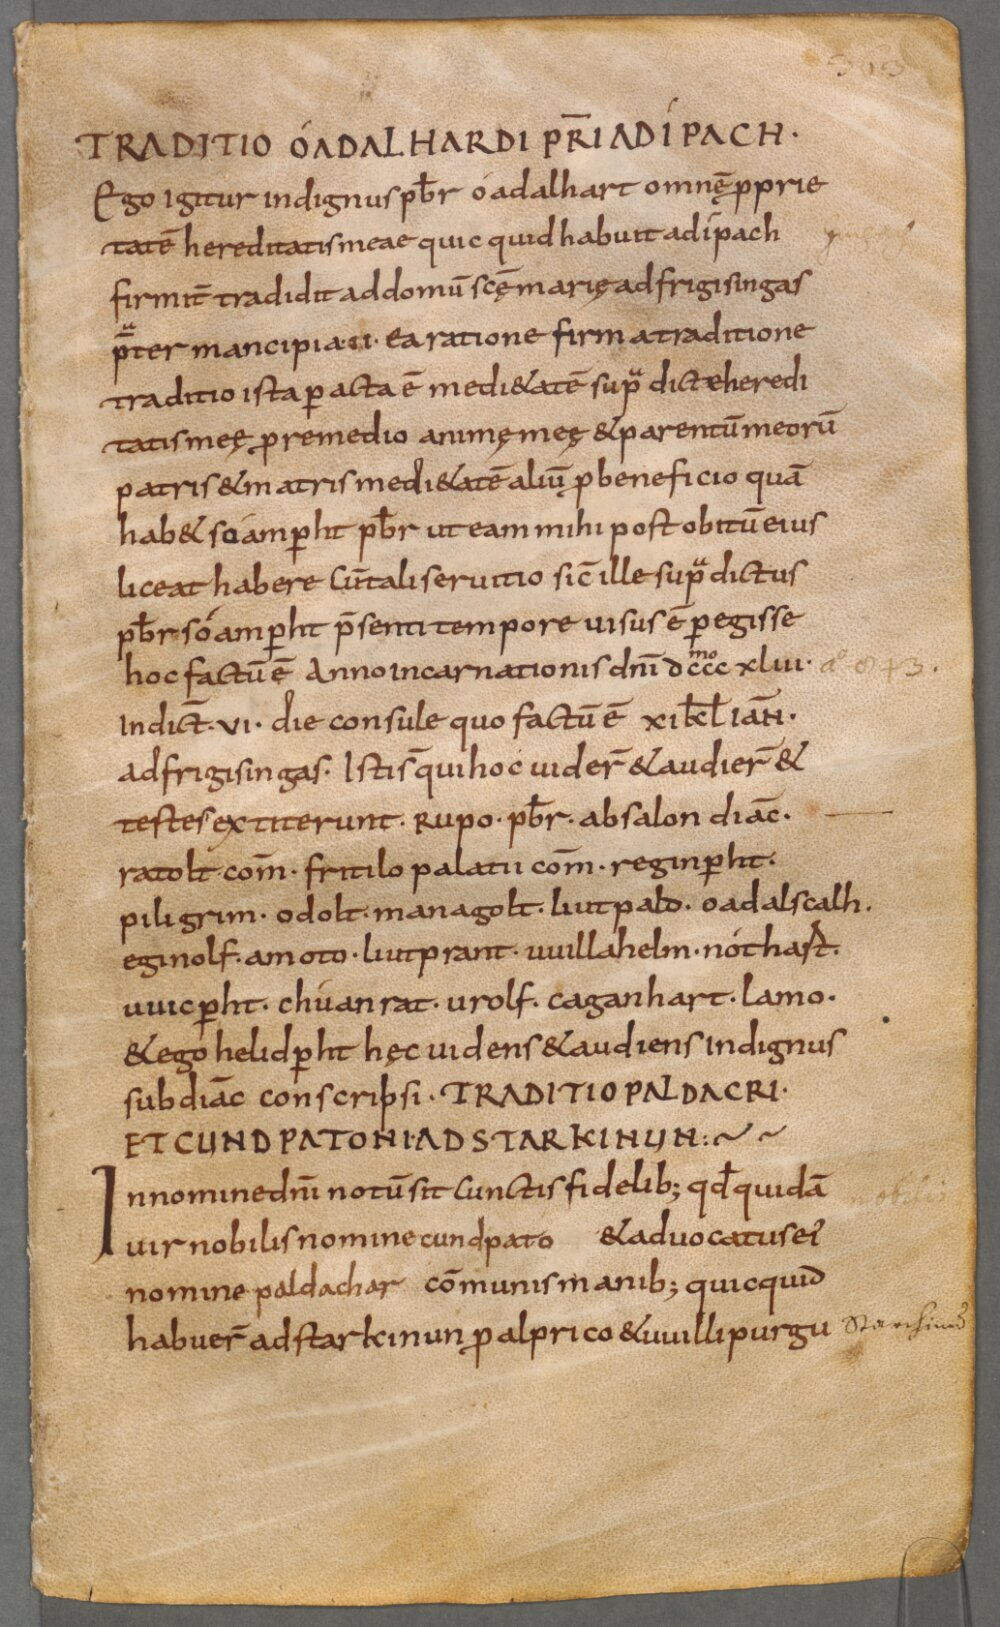 363
TRADITIO ÓADALHARDI PR̄I AD ÍPACH·
Ego igitur indignus pb̄r óadalhart omnē ꝓprie
tatē hereditatis meae quic quid habuit ad ípach
firmit̄ tradidit ad domū scę̄ marię ad frigisingas
p̄ter mancipia·II· ea ratione firma traditione
traditio ista ꝑacta ē medi&atē supᷓ dicte heredi
tatis meę ꝓ remedio animę meę & parentū meorū
patris & matris medi&atē aliū ꝓ beneficio quā
hab& sóamꝑht pb̄r ut eam mihi post obitū eius
liceat habere cū tali seruitio sic̄ ille supᷓdictus
pb̄r sóamꝑht p̄senti tempore uisus ē ꝑegisse
hoc factū ē Anno incarnationis dn̄i dcccmo xluı· a° 843.
Indict̄·VI· die consule quo factū ē xı kl̄ iān̄·
ad frigisingas· Istis̄ qui hoc uider̄ & audier̄ &
testes extiterunt· Rupo· pb̄r· absalon diāc·
ratolt com̄· fritilo palatii com̄· reginꝑht·
piligrim· odolt· managolt· liutpald· oadalscalh·
eginolf· amoto· liutprant· uuillahelm· nóthaft·
uuicꝑht· chúanrat· urolf· caganhart· lamo·
& ego helidꝑht hęc uidens & audiens indignus
subdiāc conscripsi· TRADITIO PALDACRI·
ET CUNDPATONI· AD STARKINUN:~ ~
In nomine dn̄i notū sit cunctis fidelib; qd̄ quidā
uir nobilis nomine cundpato & aduocatus ei'
nomine paldachar cōmunis manib; quicquid
habuer̄ ad starkinun ꝓ alprico & uuillipurgu